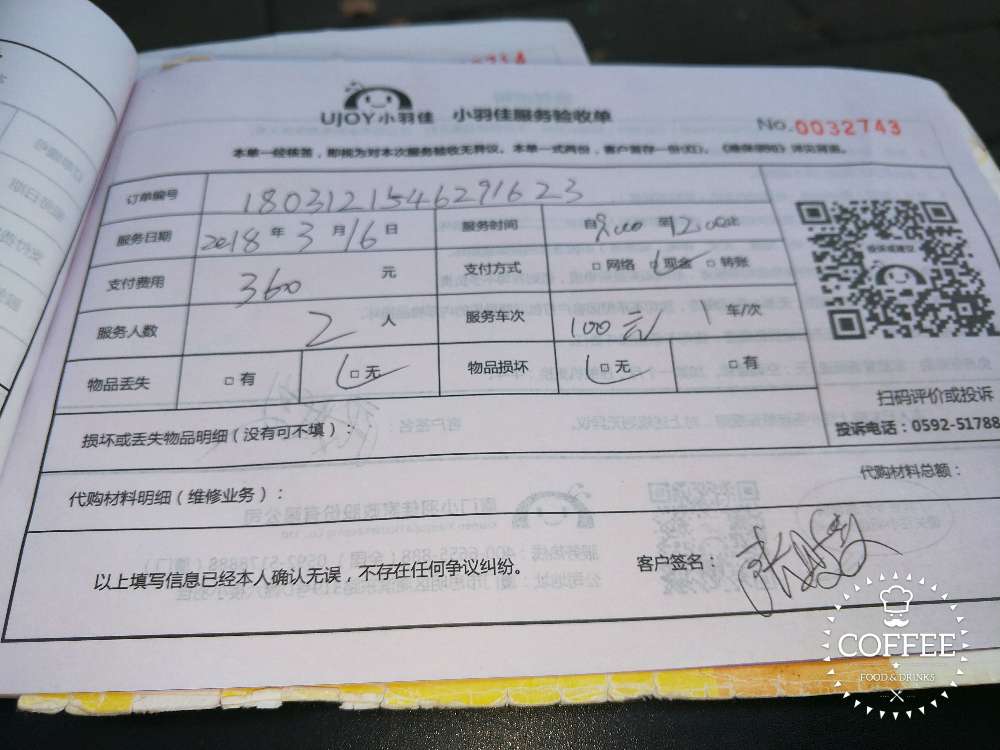 UJOY小羽佳 小羽佳服务验收单
No.0032743
本单一经核签，即视为对本次服务验收无异议。本单一式两份，客户留存一份(红)。
订单编号 1803121546291623
服务日期 2018年3月16日 服务时间 自9:00至12:00
支付费用 360 元 支付方式 □网络 □现金 □转账
服务人数 2人 服务车次 100元 1车/次
物品丢失 □有 □无 物品损坏 □无 □有
扫码评价或投诉
投诉电话：0592-51788
损坏或丢失物品明细（没有可不填）：
代购材料明细（维修业务）：
代购材料总额：
以上填写信息已经本人确认无误，不存在任何争议纠纷。
客户签名：
COFFEE
FOOD & DRINKS